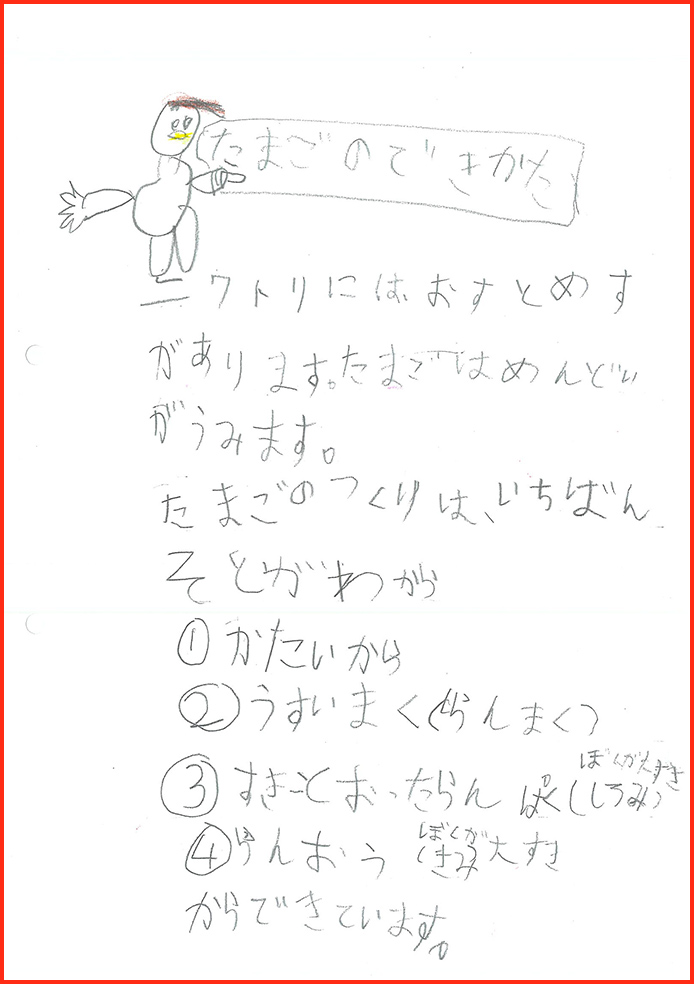 たまごのできかた
ニワトリには、おすとめす
があります。たまごはめんどり
がうみます。
たまごのつくりは、いちばん
そとがわから
①かたいから
②うすいまく(らんまく)
③すきとおったらん ぱく(しろみ)
ぼくが大すき
④らんおう (きみ)
ぼくが大すき
からできています。